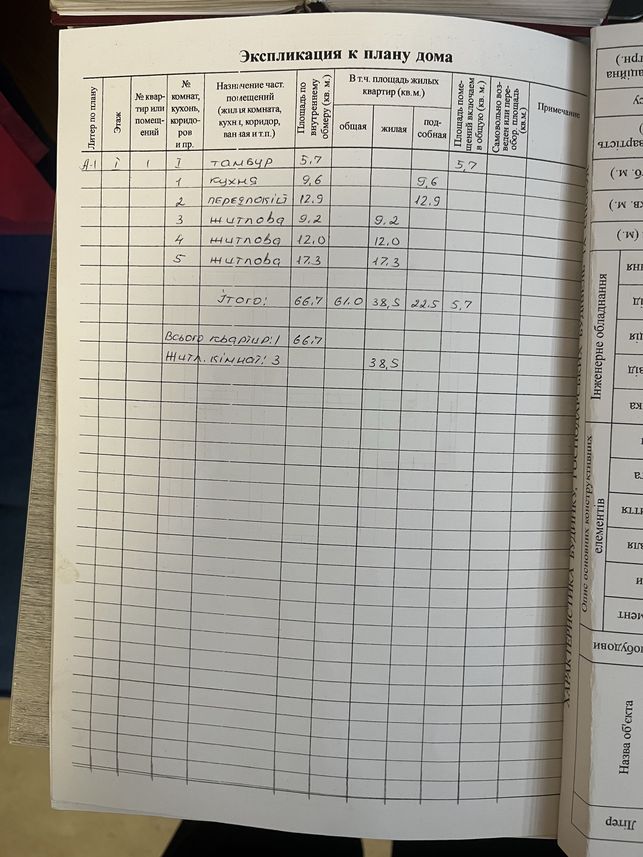 Экспликация к плану дома
Литер по плану
Этаж
№ квар-
тир или
помещ-
ений
№
комнат,
кухонь,
коридо-
ров
и пр.
Назначение част.
помещений
(жилая комната,
кухня, коридор,
ванная и т.п.)
Площадь по
внутреннему
обмеру (кв. м.)
В т.ч. площадь жилых
квартир (кв.м.)
общая
жилая
под-
собная
Площадь поме-
щений включаем
в общую (кв. м.)
Самовольно воз-
веден или пере-
обор. площадь
(кв.м.)
Примечание
А-1 I 1 I тамбур 5,7 5,7
1 кухня 9,6 9,6
2 12,9 12,9
3 житлова 9,2 9,2
4 житлова 12,0 12,0
5 житлова 17,3 17,3
Ітого: 66,7 61.0 38,5 22.5 5,7
Всього квартир: 1 66,7
Житл. кімнат: 3 38,5
ХАРАКТЕРИСТИКА БУДИНКУ, ГОСПОДАРСЬКИХ БУДІВЕЛЬ ТА
Опис основних конструктивних
елементів
Інженерне обладнання
Назва об'єкта
Літер